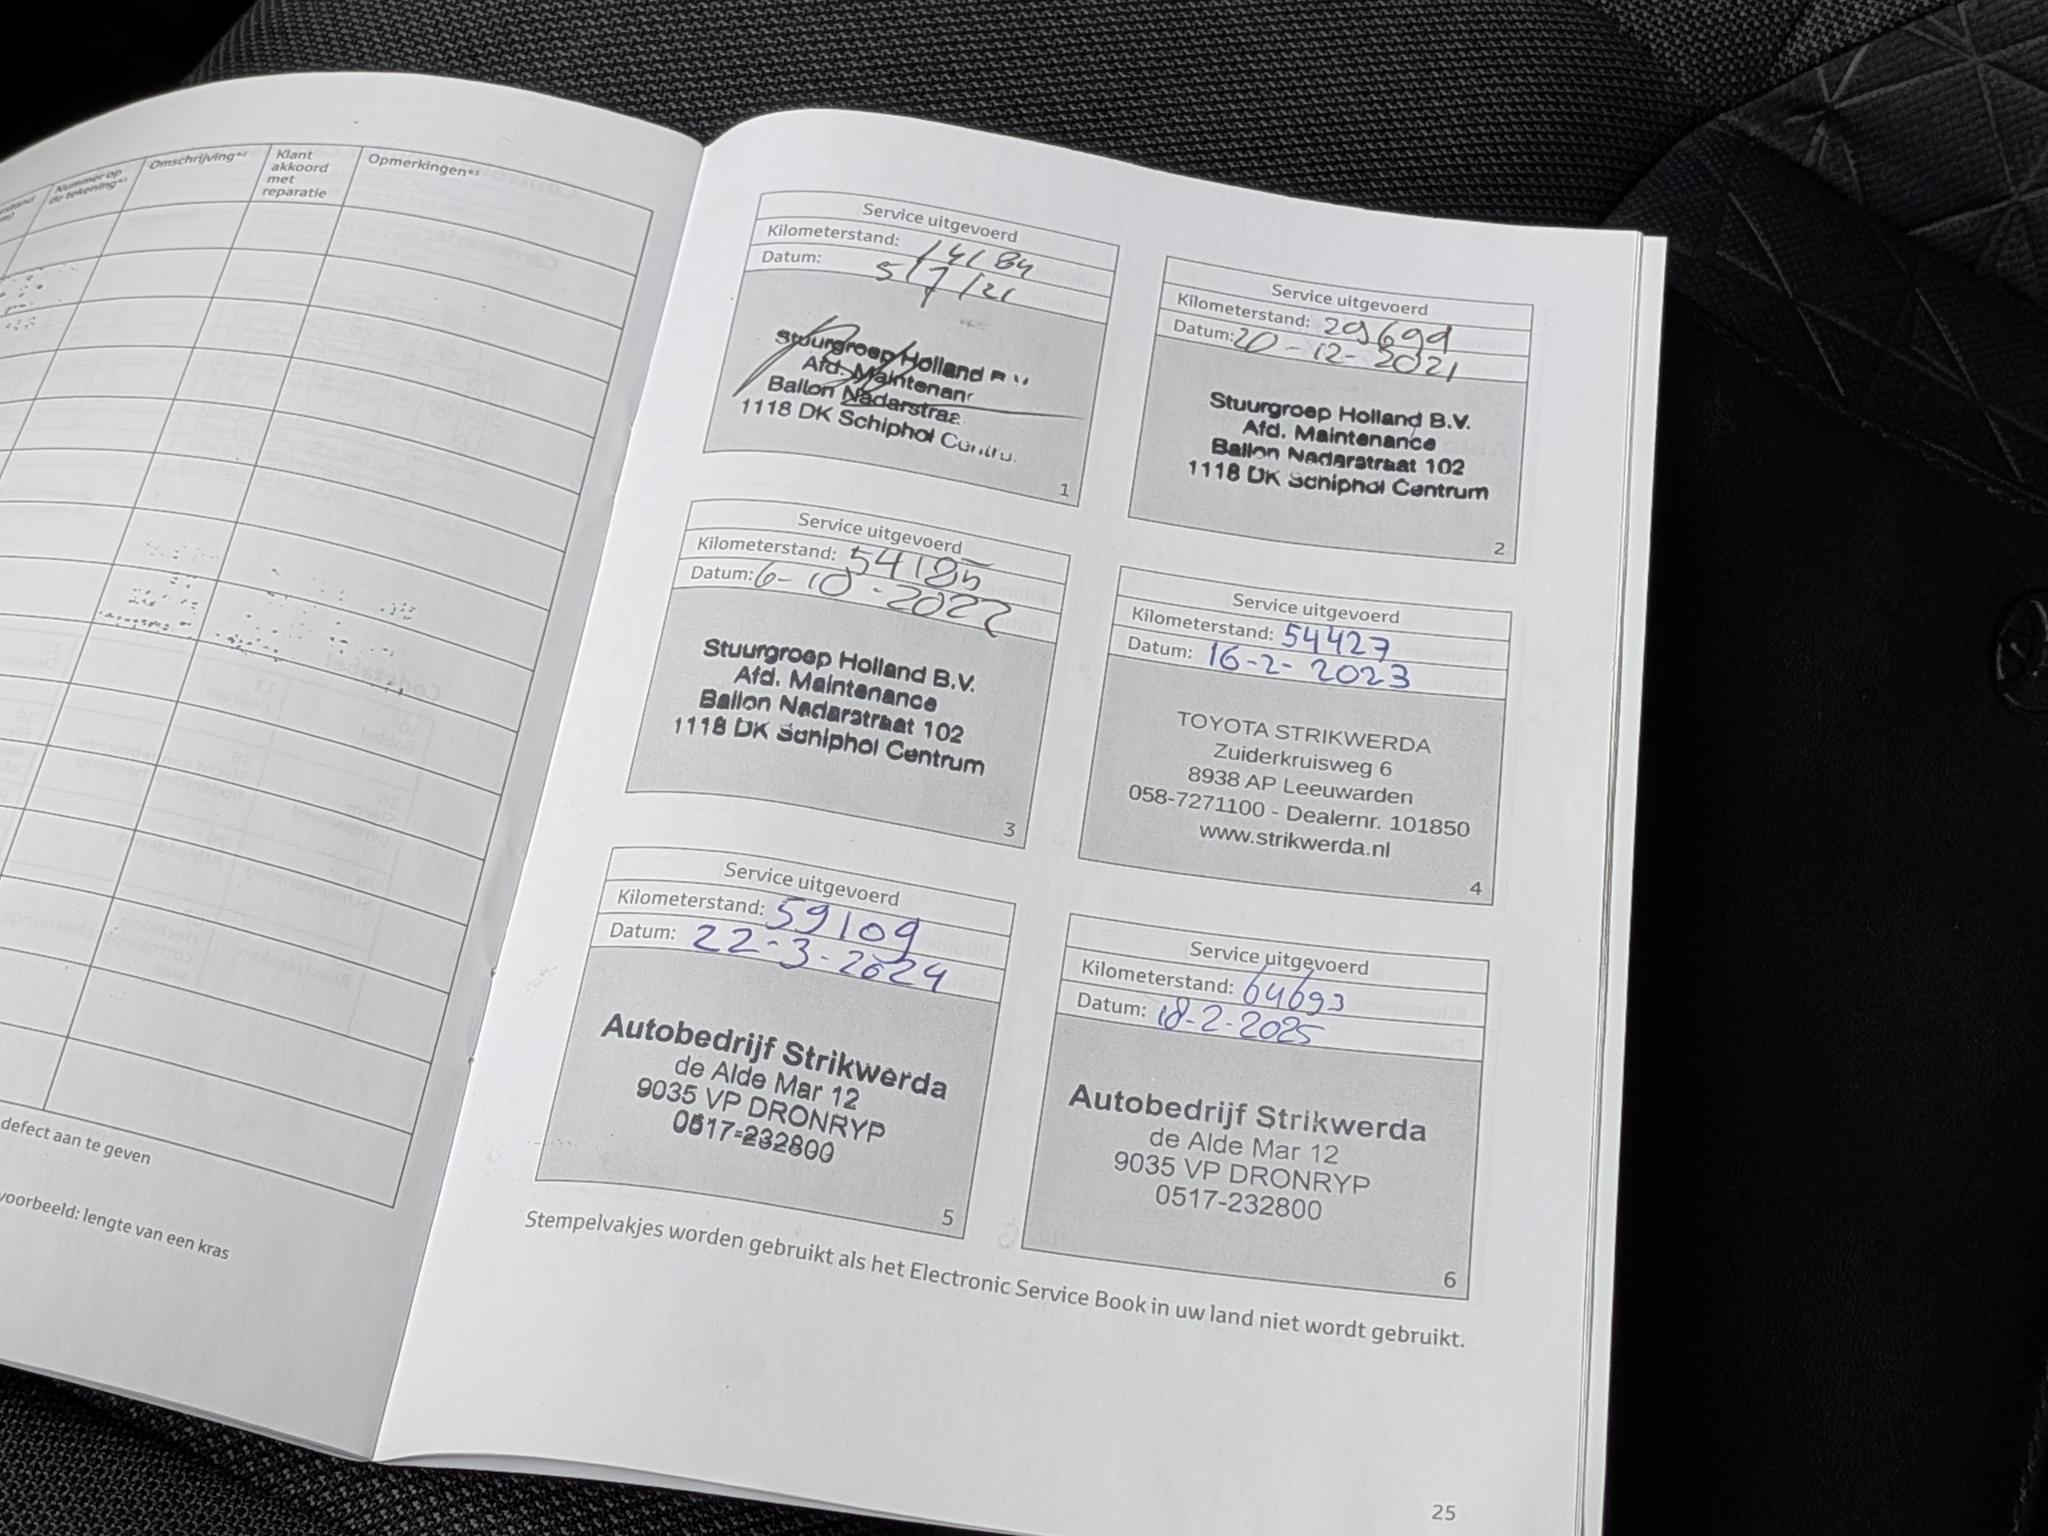 Nummer op
de tekening*¹
Omschrijving*²
Klant
akkoord
met
reparatie
Opmerkingen*³
defect aan te geven
voorbeeld: lengte van een kras
Service uitgevoerd
Kilometerstand: 14184
Datum: 5/7/21
Stuurgroep Holland B.V.
Afd. Maintenanc
Ballon Nadarstraa
1118 DK Schiphol Centru
1
Service uitgevoerd
Kilometerstand:
Datum: 20-12-2021
Stuurgroep Holland B.V.
Afd. Maintenance
Ballon Nadarstraat 102
1118 DK Schiphol Centrum
2
Service uitgevoerd
Kilometerstand:
Datum: 6-10-2022
Stuurgroep Holland B.V.
Afd. Maintenance
Ballon Nadarstraat 102
1118 DK Schiphol Centrum
3
Service uitgevoerd
Kilometerstand: 54427
Datum: 16-2-2023
TOYOTA STRIKWERDA
Zuiderkruisweg 6
8938 AP Leeuwarden
058-7271100 - Dealernr. 101850
www.strikwerda.nl
4
Service uitgevoerd
Kilometerstand: 59109
Datum: 22-3-2024
Autobedrijf Strikwerda
de Alde Mar 12
9035 VP DRONRYP
0517-232800
5
Service uitgevoerd
Kilometerstand: 64693
Datum: 18-2-2025
Autobedrijf Strikwerda
de Alde Mar 12
9035 VP DRONRYP
0517-232800
6
Stempelvakjes worden gebruikt als het Electronic Service Book in uw land niet wordt gebruikt.
25